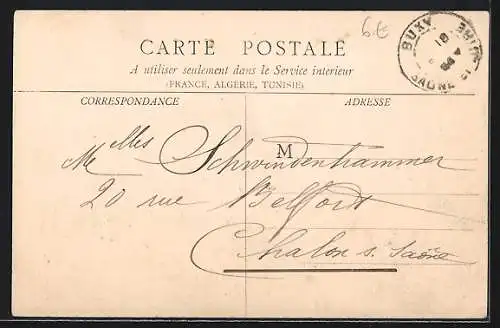 6€
CARTE POSTALE
A utiliser seulement dans le Service intérieur
(FRANCE, ALGERIE, TUNISIE)
CORRESPONDANCE
ADRESSE
BUXY
18
SAONE
M
Melles Schwindenhammer
20 rue Belfort
Chalon s. Saône